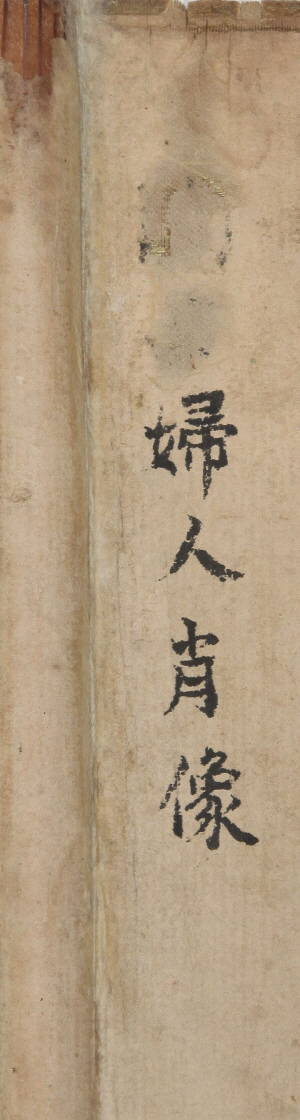 婦人肖像